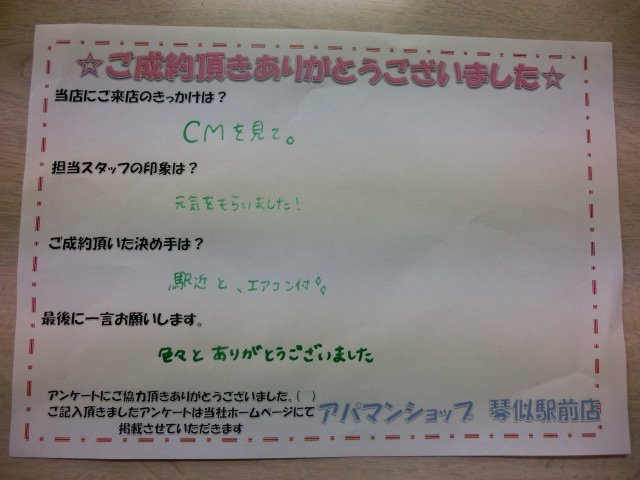 ☆ご成約頂きありがとうございました☆
当店にご来店のきっかけは？
CMを見て。
担当スタッフの印象は？
元気をもらいました！
ご成約頂いた決め手は？
駅近と、エアコン付
最後に一言お願いします。
色々とありがとうございました
アンケートにご協力頂きありがとうございました。(￣￣)
ご記入頂きましたアンケートは当社ホームページにて
掲載させていただきます
アパマンショップ 琴似駅前店